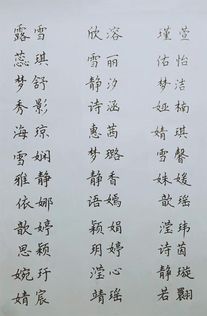 露雪 欣溶 瑾萱
蕊琪 雪丽 佑怡
梦舒 静汐 梦洁
秀影 诗涵 娅楠
海琼 惠茜 婧琪
雪娴 梦璐 雪馨
雅静 静香 姝媛
依娜 语嫣 歆瑶
歆婷 颖娟 滢玮
思颖 玥婷 诗茵
婉玗 滢心 静璇
婧宸 靖瑶 若翾